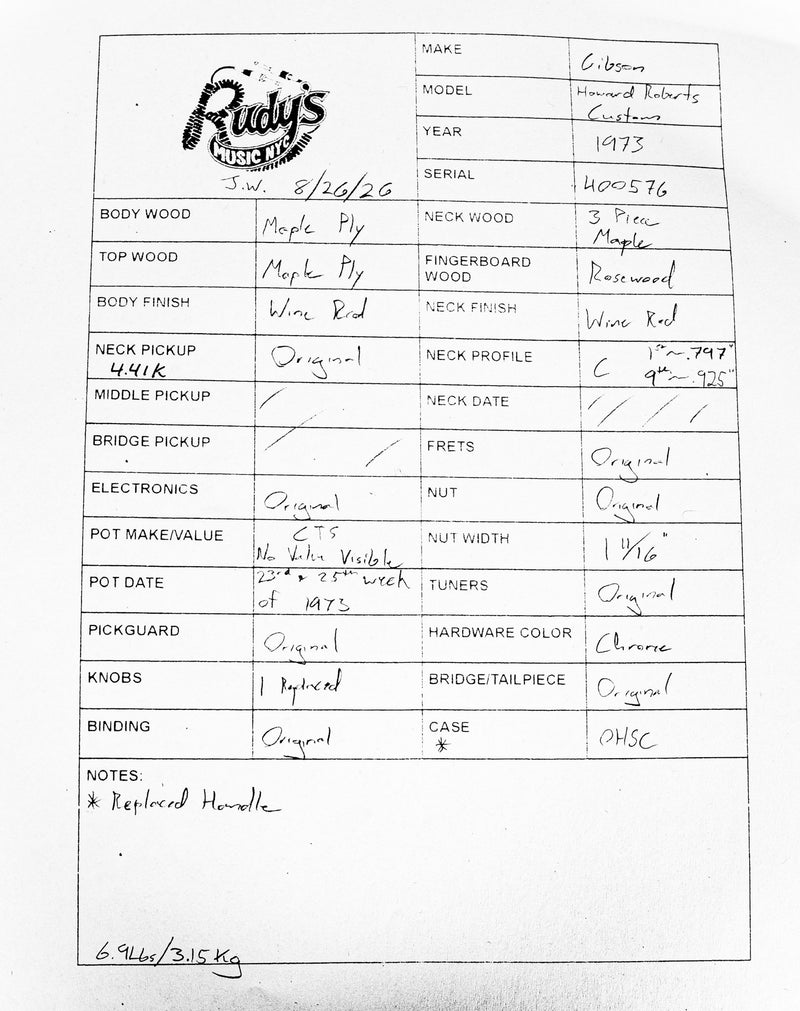 Rudy's
MUSIC NYC
J.W. 8/26/26
MAKE Gibson
MODEL Howard Roberts
Custom
YEAR 1973
SERIAL 400576
BODY WOOD Maple Ply
NECK WOOD 3 Piece
Maple
TOP WOOD Maple Ply
FINGERBOARD
WOOD Rosewood
BODY FINISH Wine Red
NECK FINISH Wine Red
NECK PICKUP Original
4.41K
NECK PROFILE C 1st ~ .797"
9th ~ .925"
MIDDLE PICKUP /
NECK DATE / / / /
BRIDGE PICKUP / /
FRETS Original
ELECTRONICS Original
NUT Original
POT MAKE/VALUE CTS
No Value Visible
NUT WIDTH 1 11/16"
POT DATE 23rd & 25th week
of 1973
TUNERS Original
PICKGUARD Original
HARDWARE COLOR Chrome
KNOBS 1 Replaced
BRIDGE/TAILPIECE Original
BINDING Original
CASE OHSC
*
NOTES:
* Replaced Handle
6.9Lbs/3.15Kg